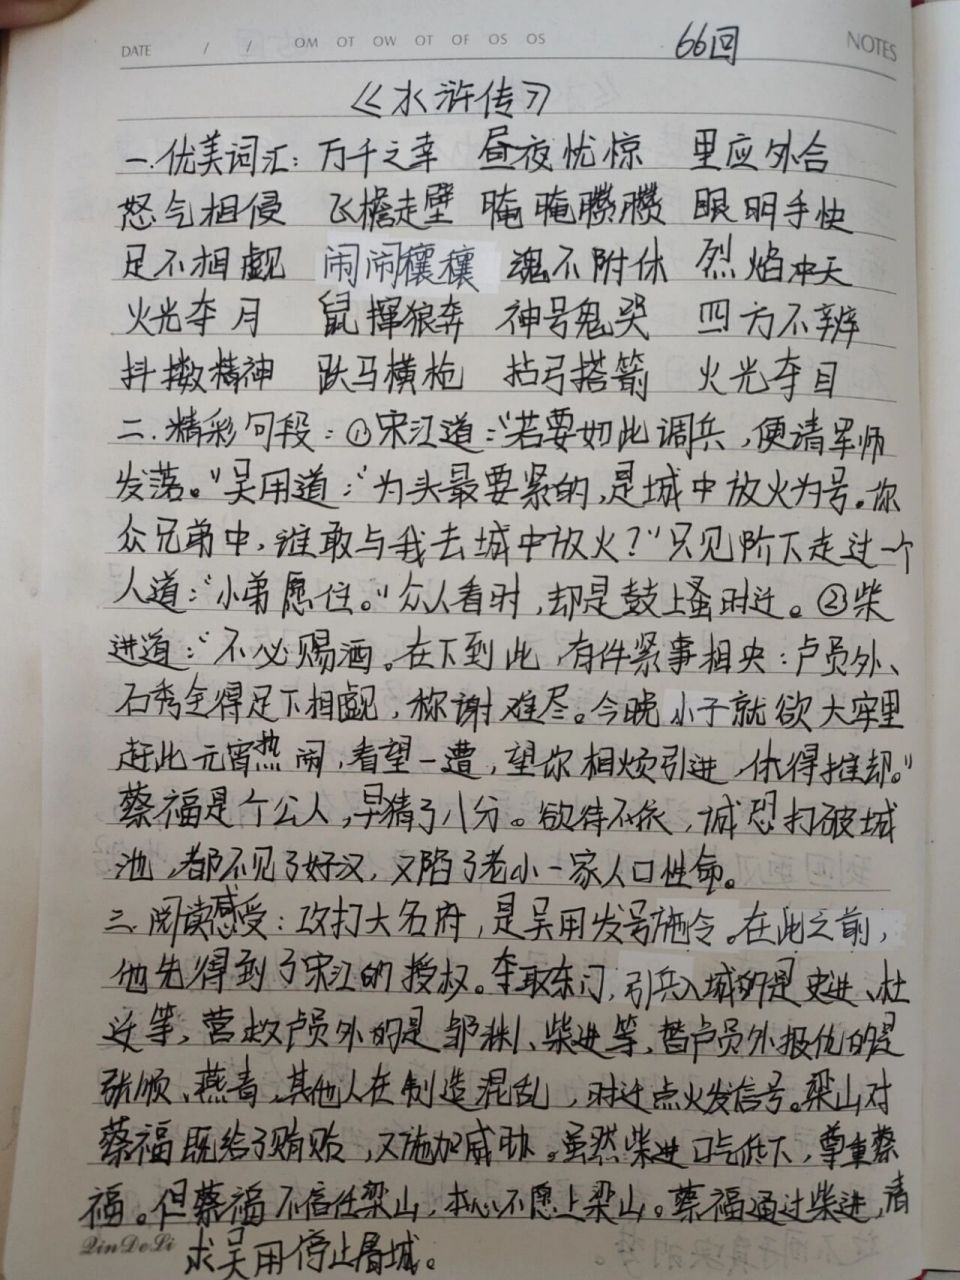 DATE / / OM OT OW OT OF OS OS 66回 NOTES
《水浒传》
一.优美词汇：万千之幸 昼夜忧惊 里应外合
怒气相侵 飞檐走壁 晻晻 眼明手快
足不相觑 闹闹穰穰 魂不附休 烈焰冲天
火光夺月 鼠撺狼奔 神号鬼哭 四方不辨
抖擞精神 跃马横枪 拈弓搭箭 火光夺目
二.精彩句段：①宋江道：“若要如此调兵，便请军师
发落。”吴用道：“为头最要紧的，是城中放火为号。你
众兄弟中，谁敢与我去城中放火？”只见阶下走过一个
人道：“小弟愿住。”众人看时，却是鼓上蚤时迁。②柴
进道：“不必赐酒。在下到此，有件紧事相央：卢员外、
石秀全得足下相觑，称谢难尽。今晚小子就欲大牢里
赶此元宵热闹，看望一遭，望你相烦引进，休得推却。”
蔡福是个公人，早猜了八分。欲待不依，诚恐打破城
池，都不见了好汉，又陷了老小一家人口性命。
三.阅读感受：攻打大名府，是吴用发号施令。在此之前，
他先得到了宋江的授权。夺取东门，引兵入城的是史进、杜
迁等，营救卢员外的是邹渊、柴进等，替卢员外报仇的是
张顺、燕青，其他人在制造混乱，时迁点火发信号。梁山对
蔡福既给了贿赂，又施加威胁。虽然柴进口气低下，尊重蔡
福。但蔡福不信任梁山，本心不愿上梁山。蔡福通过柴进，请
求吴用停止屠城。
QinDeLi